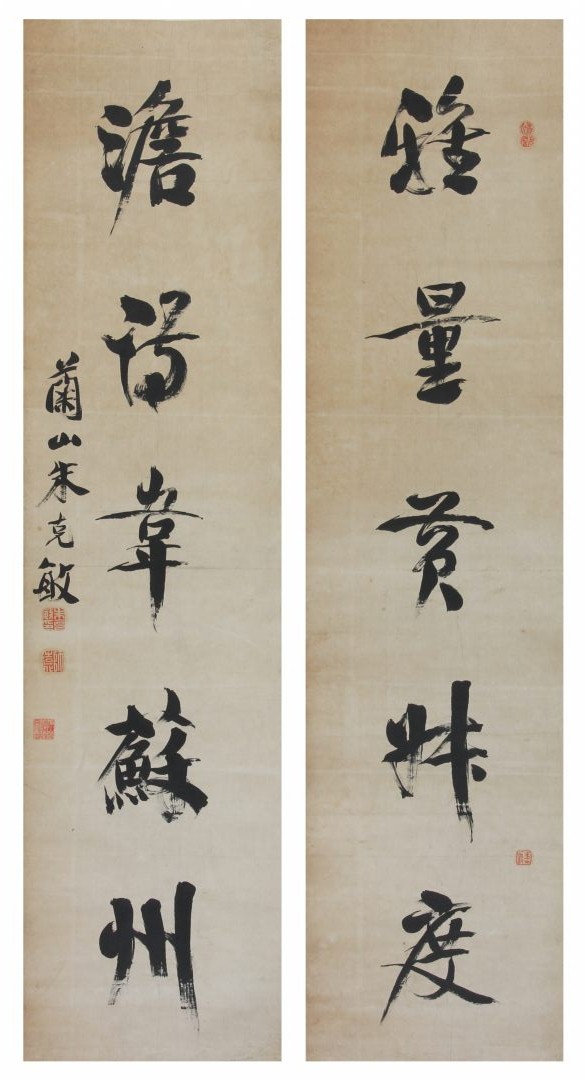 雅量黄叔度
澹詩韋蘇州
蘭山朱克敏